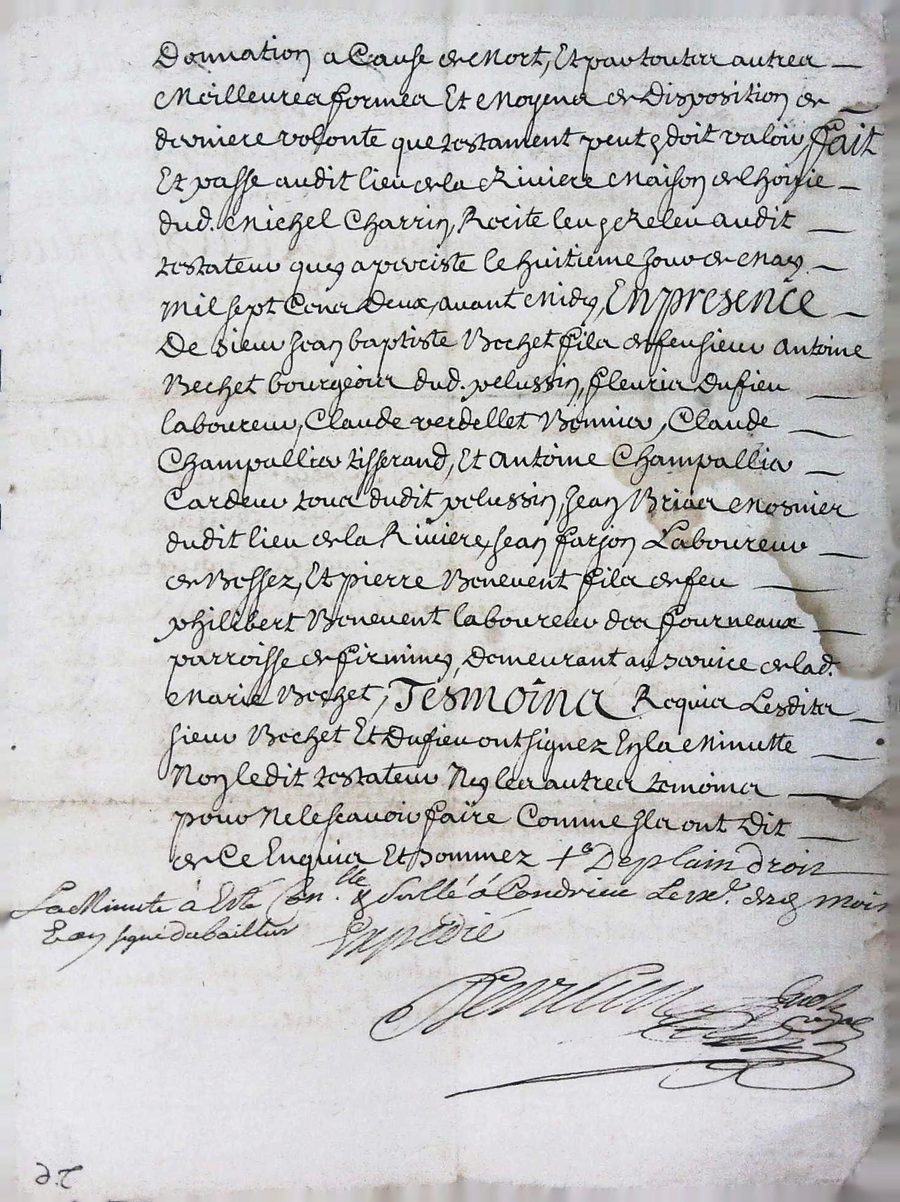 Donnation a Cause de Mort, Et par toutes autres
Meilleures formes Et Moyens de Disposition de
derniere volonte que testament peut & doit valoir, ffait
Et passe audit lieu de la Riviere Maison de lhoirie
dud. Michel Charrin, Recite leu & Releu audit
testateur quy a perciste le huitieme Jour de May
Mil sept Cens Deux, avant Midy, En presence
De sieur Jean baptiste Bechet fils de feu sieur Antoine
Bechet bourgeois dud. pelussin, fleuris Dufieu
laboureur, Claude verdellet Bonnier, Claude
Champallies tisserand, Et Antoine Champallies
Cardeur tous dudit pelussin, Jean Brias Mosnier
dudit lieu de la Riviere, Jean farjon Laboureur
de Bessez, Et pierre Benevent fils de feu
philibert Benevent laboureur des fourneaux
parroisse de firminy, Demeurant au service de lad.
Marie Bechet, Tesmoins Requis Lesdits
sieur Bechet Et Dufieu ont signez En la Minutte
Non ledit testateur Ny les autres temoins
pour Ne le scavoir faire Comme Ils ont Dit
de Ce Enquis Et sommez De plain droit
La Minute à Esté Con.lle & à Condrieu Le
Expedié